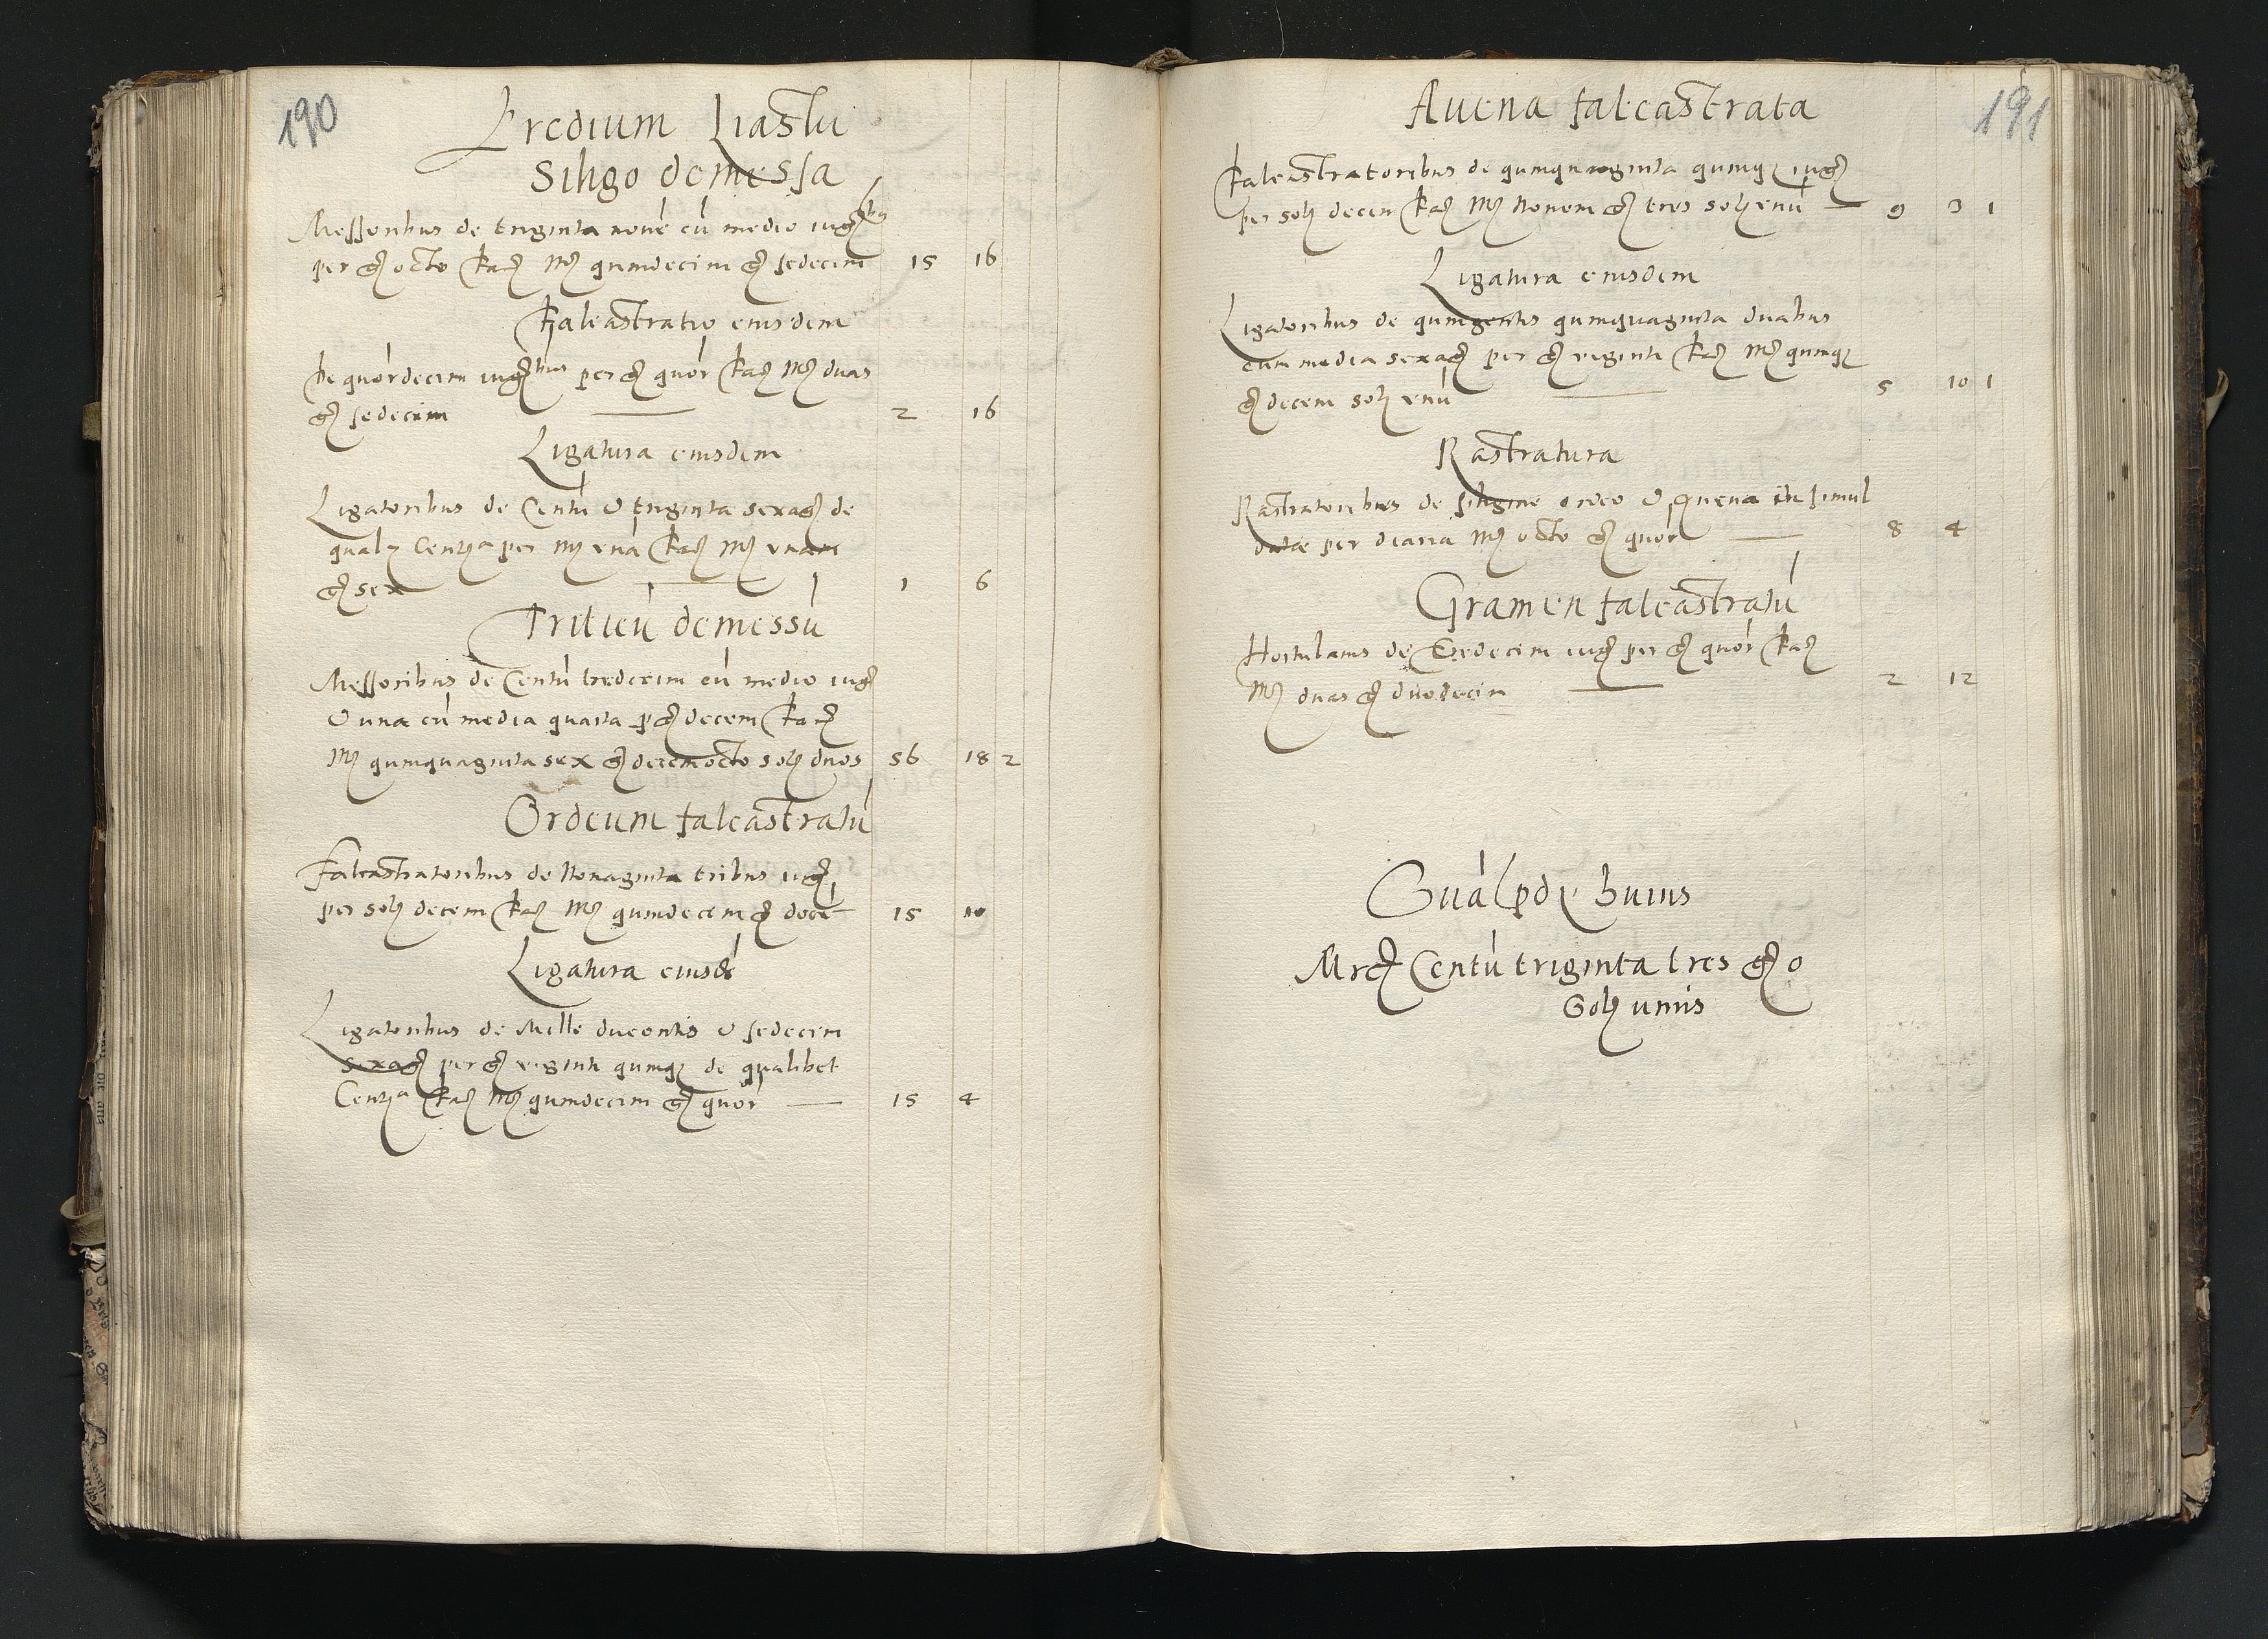 190
Predium Liastu
Siligo demessa
Messoribus de triginta nouē cū medio iugȝbus
per gȝ octo facȝ Mȝ quindecim gȝ sedecim 15 16
Falcastratio eiusdem
De quòrdecim iugȝbus per gȝ quòr facȝ Mȝ duas
gȝ sedecim — 2 16
Ligatura eiusdem
Ligatoribus de Centū & triginta sexagȝ de
qualȝ Centȝa per Mȝ vnā facȝ Mȝ vnam
gȝ sex — 1 6
Triticū demessū
Messoribus de Centū tredecim cū medio iugȝ
& una cū media quarta ꝑ gȝ decem facȝ
Mȝ quinquaginta sex gȝ decemocto solȝ duos 56 18 2
Ordeum falcastratū
Falcastratoribus de Nonaginta tribus iugȝ
per solȝ decem facȝ Mȝ quindecim gȝ decē 15 10
Ligatura eiusdē
Ligatoribus de Mille ducentis & sedecim
sexagȝ per gȝ viginti quinqȝ de qualibet
Centȝa facȝ Mȝ quindecim gȝ quòr — 15 4
191
Auena falcastrata
Falcastratoribus de quinquaginta quinqȝ iugȝ
per solȝ decem facȝ Mȝ Nouem gȝ tres solȝ vnū — 9 3 1
Ligatura eiusdem
Ligatoribus de quingentis quinquaginta duabus
cum media sexagȝ per gȝ viginti facȝ Mȝ quinqȝ
gȝ decem solȝ vnū — 5 10 1
Rastratura
Rastratoribus de siligine ordeo & Auena in simul
datae per diaria Mȝ octo gȝ quòr — 8 4
Gramen falcastratū
Hortulanis de Tredecim iugȝ per gȝ quòr facȝ
Mȝ duas gȝ duodecim — 2 12
huius
Mrcȝ Centū triginta tres gȝ 0
Solȝ unus